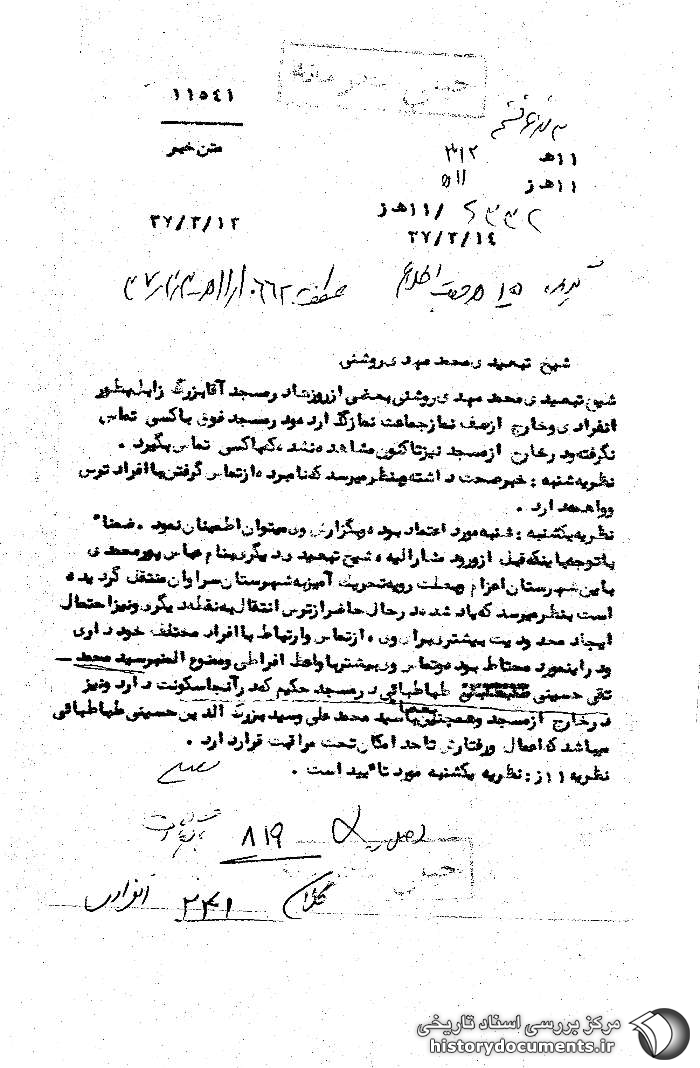 خیلی محرمانه
۱۱۵۴۱
متن خبر
۱۱ هـ ۳۱۲
۱۱ هـ ز ۵۱۱
/ ۱۱ هـ ز
۳۷/۳/۱۳
۳۷/۳/۱۴
شیخ تبعیدی محمد مهدی روشنی
شیخ تبعیدی محمد مهدی روشنی بعضی از روزها در مسجد آقا بزرگ زابل بطور
انفرادی و خارج از صف نماز جماعت نماز گذارده و در مسجد فوق با کسی تماس
نگرفته و در خارج از مسجد نیز تاکنون مشاهده نشده که با کسی تماس بگیرد .
نظریه شنبه : خبر صحت داشته و بنظر میرسد که نامبرده از تماس گرفتن با افراد ترس
و واهمه دارد .
نظریه یکشنبه : شنبه مورد اعتماد بوده و بگزارش وی میتوان اطمینان نمود . ضمناً
با توجه باینکه قبل از ورود مشارالیه ، شیخ تبعیدی دیگری بنام عباس پورمحمدی
باین شهرستان اعزام و بعلت رویه تحریک آمیز به شهرستان سراوان منتقل گردیده
است بنظر میرسد که یاد شده در حال حاضر از ترس انتقال به نقطه دیگر و نیز احتمال
ایجاد محدودیت بیشتری برای وی ، از تماس و ارتباط با افراد مختلف خودداری
و در اینمورد محتاط بوده و تماس وی بیشتر با واعظ افراطی و ممنوع المنبر سید محمد ـ
تقی حسینی طباطبائی در مسجد حکیم که در آنجا سکونت دارد و نیز
در خارج از مسجد و همچنین با سید محمد علی و سید بزرگ الدین حسینی طباطبائی
میباشد که اعمال و رفتارش تا حد امکان تحت مراقبت قرار دارد .
نظریه ۱۱ ز : نظریه یکشنبه مورد تائید است .
۸۱۹
۲۴۱
خیلی
مرکز بررسی اسناد تاریخی
historydocuments.ir